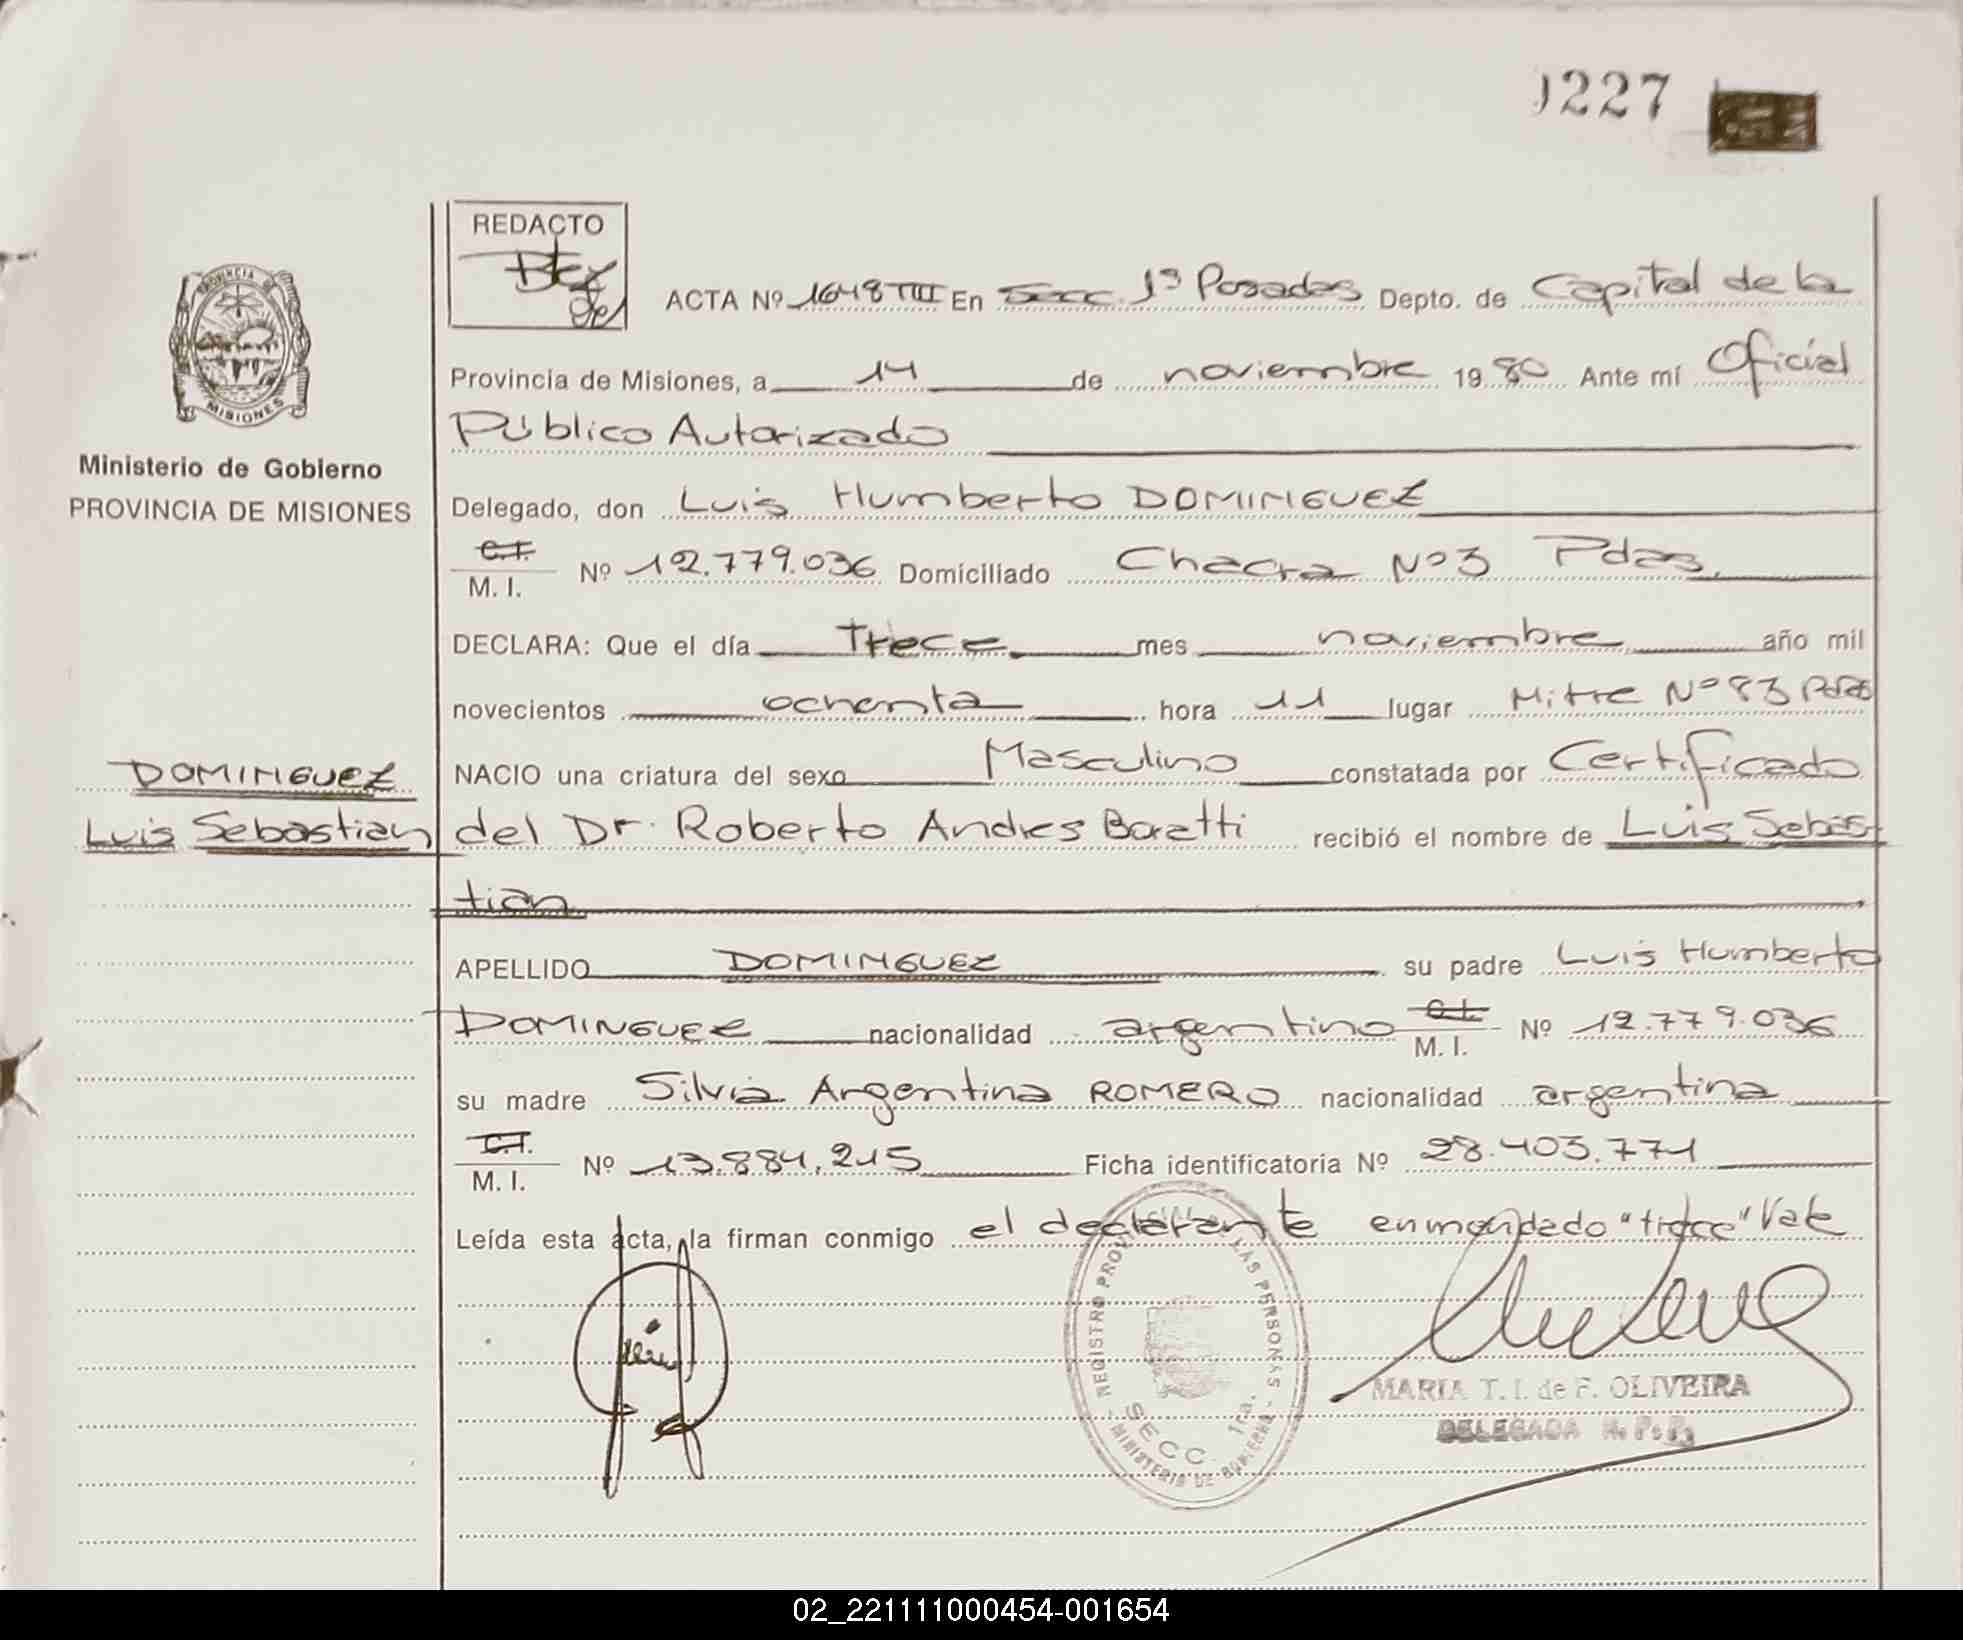 1227
REDACTO
ACTA Nº 1648 TIII En Secc. 1ª Posadas Depto. de Capital de la
Provincia de Misiones, a 14 de noviembre 1980 Ante mí Oficial
Público Autorizado
Ministerio de Gobierno
PROVINCIA DE MISIONES
Delegado, don Luis Humberto DOMINGUEZ
C.I.
M. I. Nº 12.779.036 Domiciliado Chacra Nº3 Pdas.
DECLARA: Que el día Trece mes noviembre año mil
novecientos ochenta hora 11 lugar Mitre Nº 83 Pdas
DOMINGUEZ
Luis Sebastian
NACIO una criatura del sexo Masculino constatada por Certificado
del Dr. Roberto Andres Boretti recibió el nombre de Luis Sebas
tian
APELLIDO DOMINGUEZ su padre Luis Humberto
DOMINGUEZ nacionalidad argentino C.I. M. I. Nº 12.779.036
su madre Silvia Argentina ROMERO nacionalidad argentina
C.I.
M. I. Nº 13.884.215 Ficha identificatoria Nº 28.403.771
Leída esta acta, la firman conmigo el declarante enmendado "trece" Vale
REGISTRO PROVINCIAL DE LAS PERSONAS
SECC. 1ra.
MINISTERIO DE GOBIERNO
MARIA T. I. de F. OLIVEIRA
DELEGADA R. P. P.
02_221111000454-001654